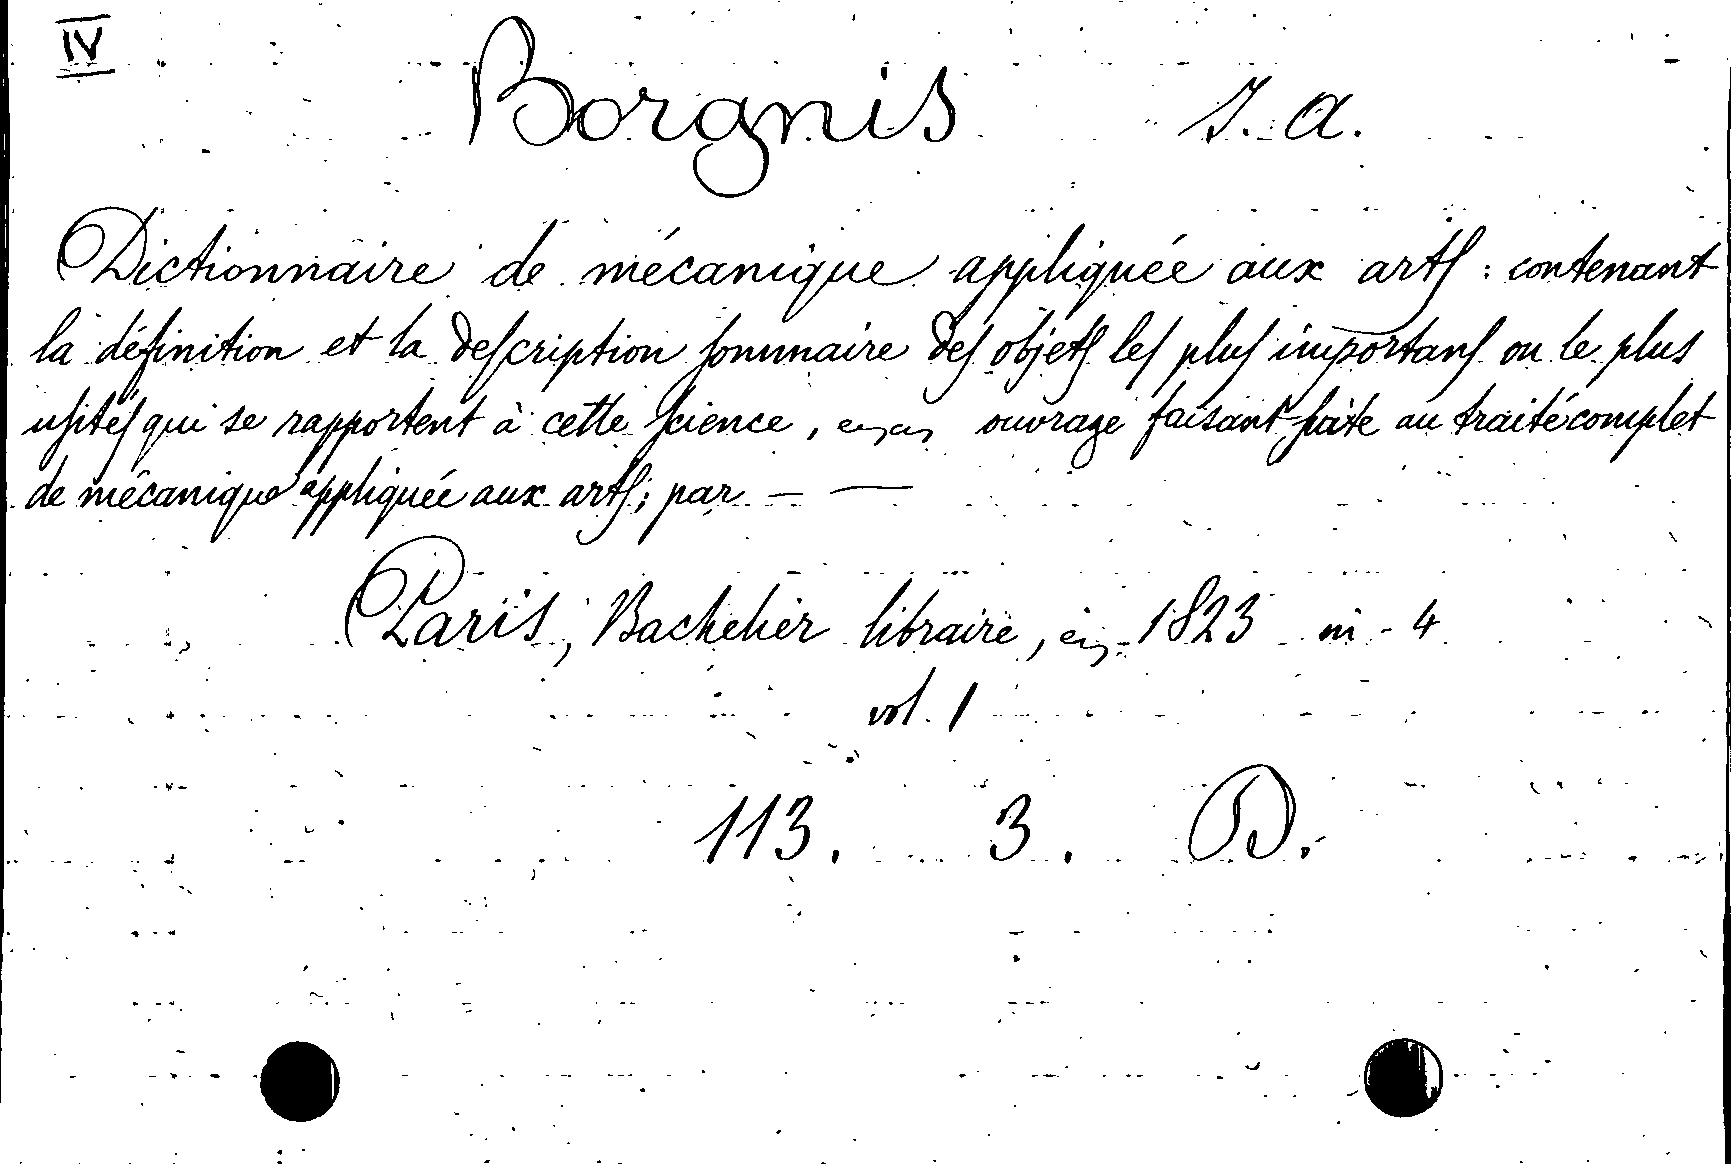 IV
Borgnis J. A.
Dictionnaire de mécanique appliquée aux arts : contenant
la définition et la description sommaire des objets les plus importans ou le plus
usités qui se rapportent à cette science, ouvrage faisant suite au traité complet
de mécanique appliquée aux arts; par — —
Paris, Bachelier libraire, 1823 in - 4
vol. 1
113. 3. D.